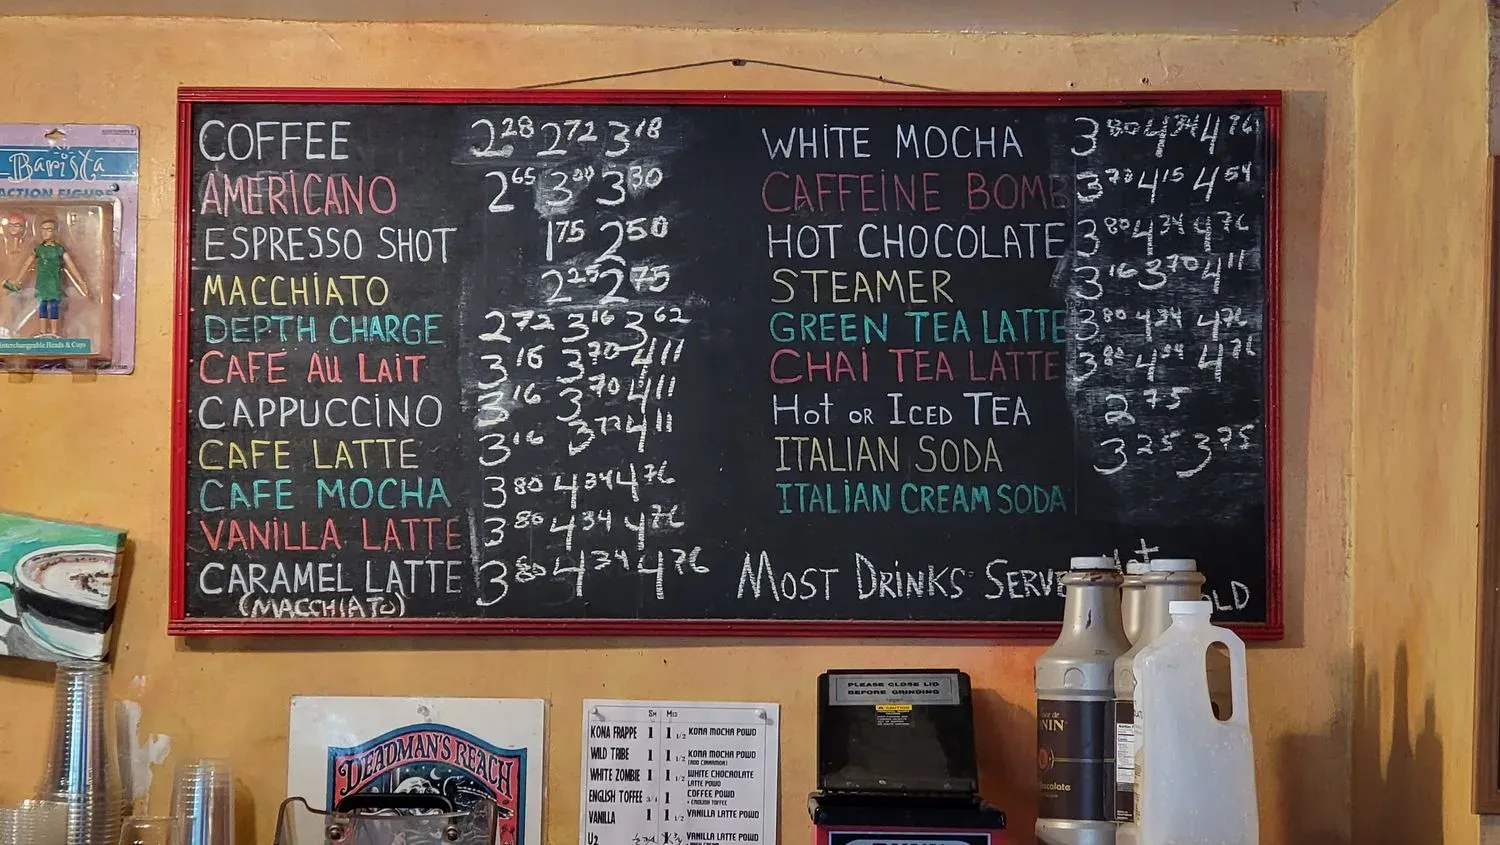 COFFEE 2.28 2.72 3.18
AMERICANO 2.65 3.00 3.30
ESPRESSO SHOT 1.75 2.50
MACCHIATO 2.25 2.75
DEPTH CHARGE 2.72 3.16 3.62
CAFE AU LAIT 3.16 3.70 4.11
CAPPUCCINO 3.16 3.70 4.11
CAFE LATTE 3.16 3.70 4.11
CAFE MOCHA 3.80 4.34 4.76
VANILLA LATTE 3.80 4.34 4.76
CARAMEL LATTE 3.80 4.34 4.76
(MACCHIATO)
WHITE MOCHA 3.80 4.34 4.76
CAFFEINE BOMB 3.73 4.15 4.54
HOT CHOCOLATE 3.80 4.34 4.76
STEAMER 3.16 3.70 4.11
GREEN TEA LATTE 3.80 4.34 4.76
CHAI TEA LATTE 3.80 4.34 4.76
Hot OR ICED TEA 2.75
ITALIAN SODA 3.25 3.75
ITALIAN CREAM SODA
MOST DRINKS SERVE
Barista
ACTION FIGURE
Interchangeable Heads & Cups
DEADMAN'S REACH
SM MED
KONA FRAPPE 1 1 1/2 KONA MOCHA POWD
WILD TRIBE 1 1 1/2 KONA MOCHA POWD
(ADD CINNAMON)
WHITE ZOMBIE 1 1 1/2 WHITE CHOCOLATE
LATTE POWD
ENGLISH TOFFEE 3/4 1 COFFEE POWD
+ ENGLISH TOFFEE
VANILLA 1 1 1/2 VANILLA LATTE POWD
U2 VANILLA LATTE POWD
PLEASE CLOSE LID
BEFORE GRINDING
CAUTION
NIN